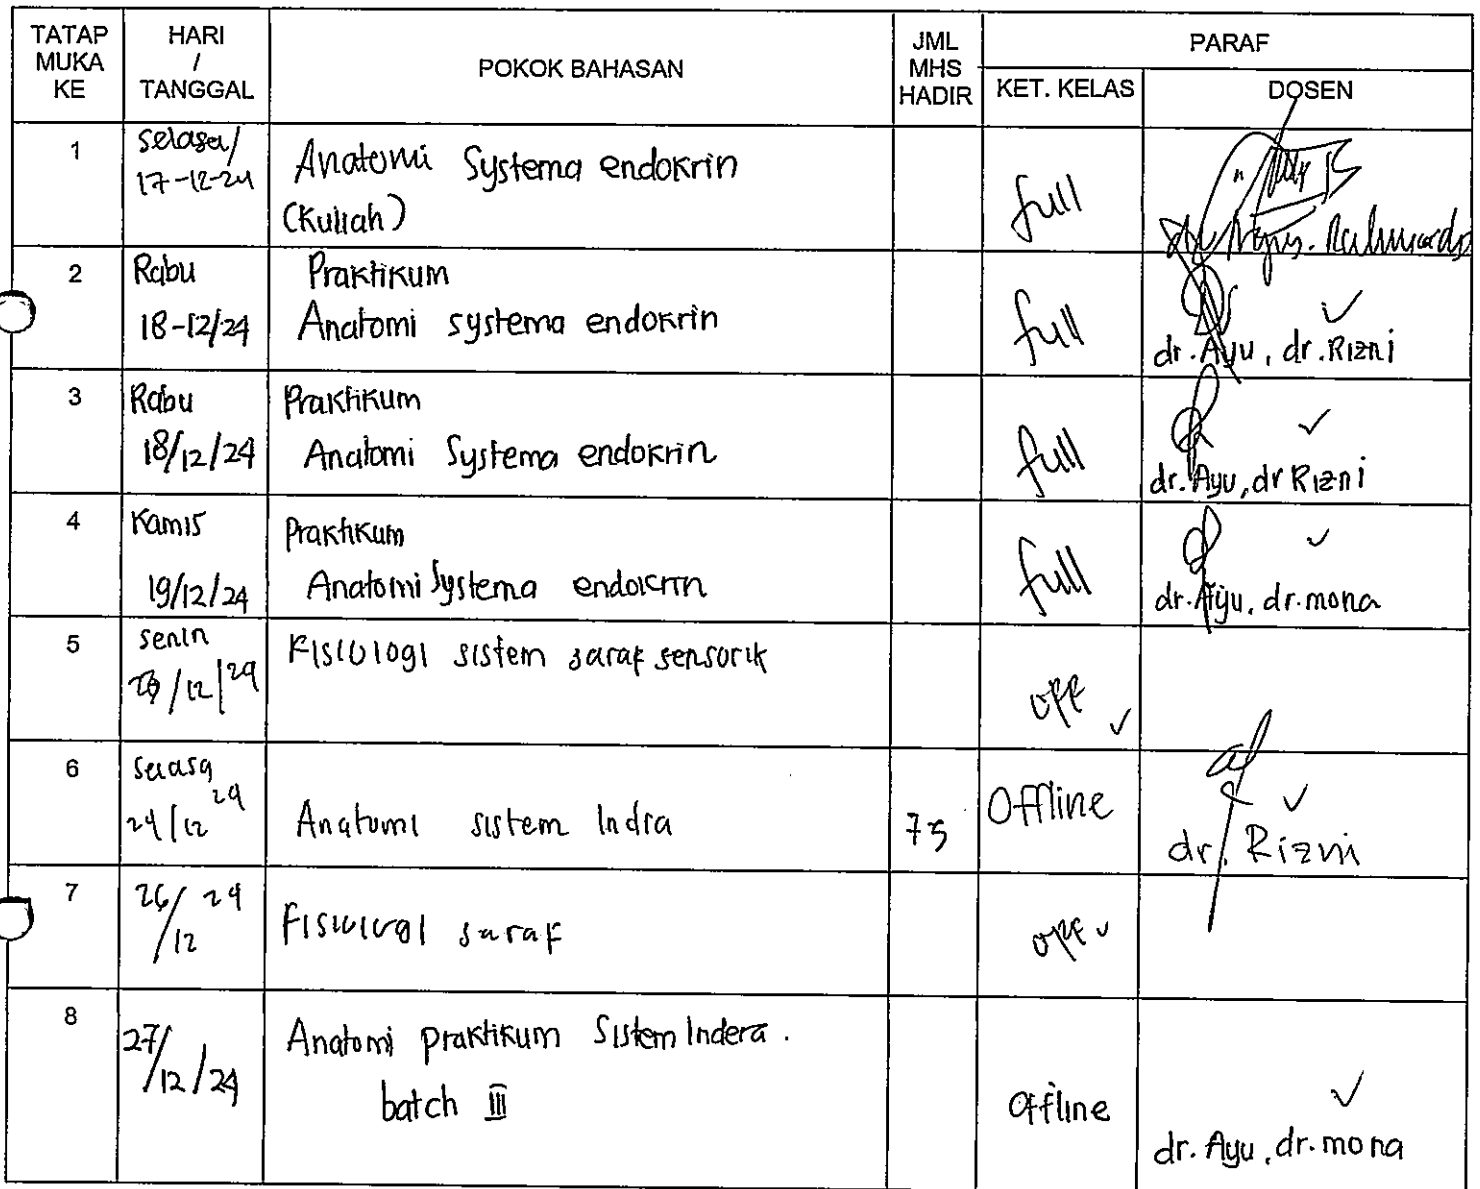 TATAP MUKA KE
HARI / TANGGAL
POKOK BAHASAN
JML MHS HADIR
PARAF
KET. KELAS
DOSEN
1
selasa/
17-12-24
Anatomi Systema endokrin
(Kuliah)
full
2
Rabu
18-12/24
Praktikum
Anatomi systema endokrin
full
dr. Ayu, dr. Rizni
3
Rabu
18/12/24
Praktikum
Anatomi Systema endokrin
full
dr. Ayu, dr Rizni
4
Kamis
19/12/24
Praktikum
Anatomi Systema endokrin
full
dr. Ayu, dr. mona
5
senin
/12/24
Fisiologi sistem saraf sensorik
off
6
selasa
24/12 24
Anatomi sistem Indra
75
Offline
dr. Rizni
7
26/12 24
Fisiologi saraf
off
8
27/12/24
Anatomi praktikum Sistem Indera.
batch III
Offline
dr. Ayu, dr. mona